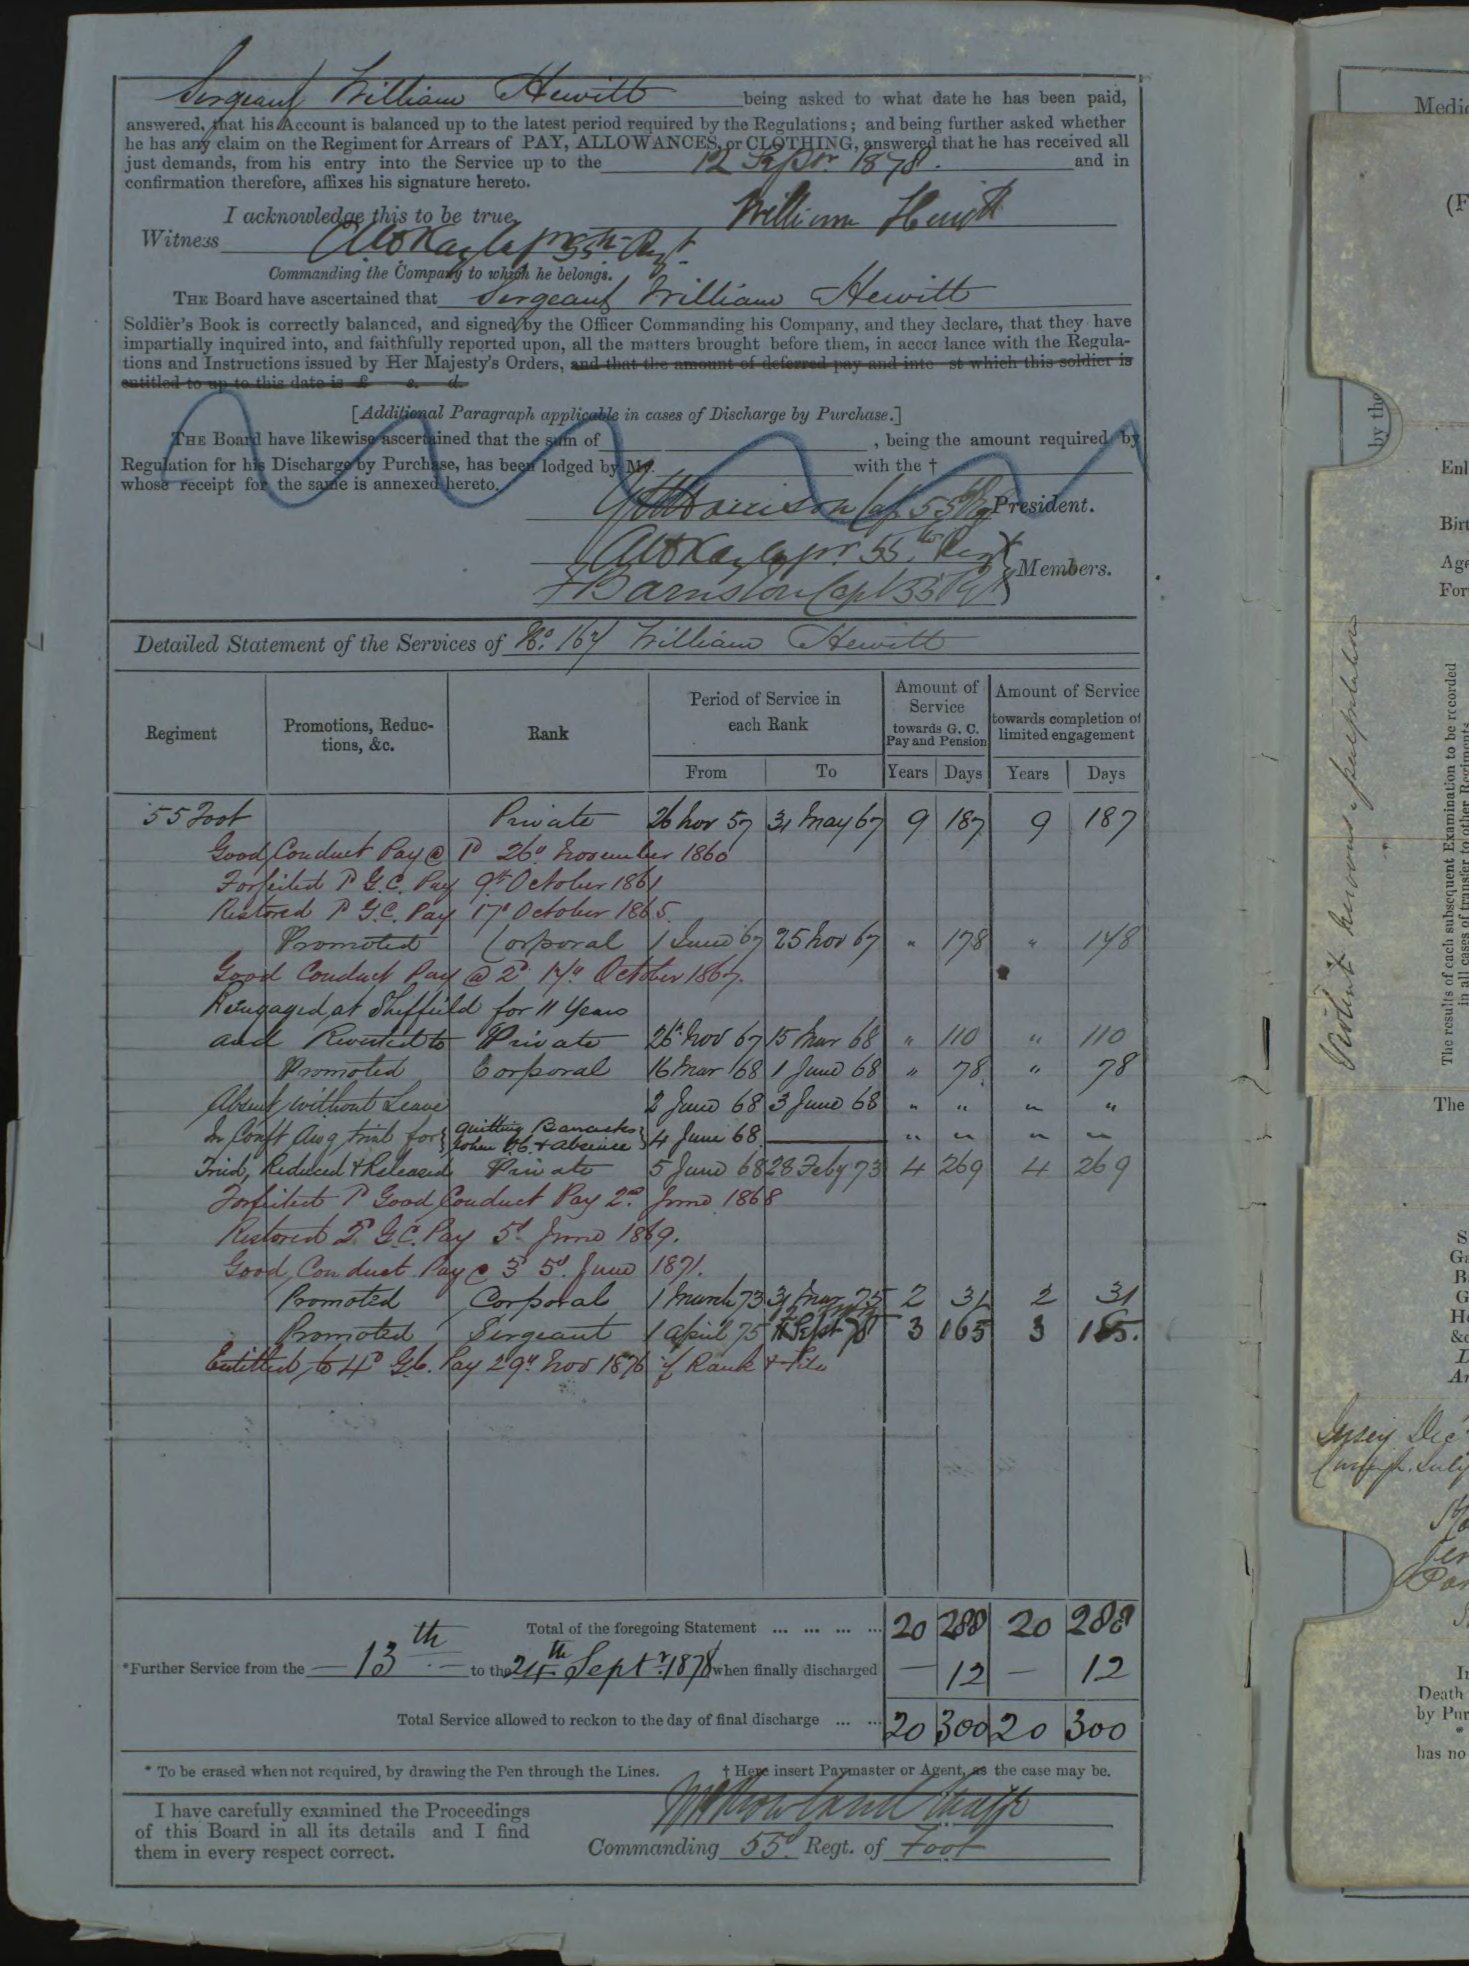 Sergeant William Hewitt being asked to what date he has been paid,
answered, that his Account is balanced up to the latest period required by the Regulations; and being further asked whether
he has any claim on the Regiment for Arrears of PAY, ALLOWANCES, or CLOTHING, answered that he has received all
just demands, from his entry into the Service up to the 12 Septr. 1878. and in
confirmation therefore, affixes his signature hereto.
I acknowledge this to be true, William Hewitt
Witness 55th Regt.
Commanding the Company to which he belongs.
THE Board have ascertained that Sergeant William Hewitt
Soldier's Book is correctly balanced, and signed by the Officer Commanding his Company, and they declare, that they have
impartially inquired into, and faithfully reported upon, all the matters brought before them, in accor lance with the Regula-
tions and Instructions issued by Her Majesty's Orders, and that the amount of deferred pay and inte st which this soldier is
entitled to up to this date is £ s. d.
[Additional Paragraph applicable in cases of Discharge by Purchase.]
THE Board have likewise ascertained that the sum of , being the amount required by
Regulation for his Discharge by Purchase, has been lodged by Mr. with the †
whose receipt for the same is annexed hereto.
Harrison Cap 55 Rg President.
55th Regt
Members.
Barnston Capt 55 Rgt
Detailed Statement of the Services of No. 167 William Hewitt
Regiment Promotions, Reduc-tions, &c. Rank Period of Service in each Rank Amount of Service towards G. C. Pay and Pension Amount of Service towards completion of limited engagement
From To Years Days Years Days
55 Foot Private 26 Nov 57 31 May 67 9 187 9 187
Good Conduct Pay @ 1d 26th November 1860
Forfeited 1d G.C. Pay 9th October 1861
Restored 1d G.C. Pay 17th October 1865.
Promoted Corporal 1 June 67 25 Nov 67 " 178 " 178
Good Conduct Pay @ 2d 17th October 1867.
Reengaged at Sheffield for 11 Years
and Reverted to Private 26th Nov 67 15 Mar 68 " 110 " 110
Promoted Corporal 16 Mar 68 1 June 68 " 78 " 78
Absent without Leave 2 June 68 3 June 68 " " " "
In Conft Awg trial for quitting Barracks when C.B. & absence 4 June 68 " " " "
Tried, Reduced & Released Private 5 June 68 28 Feby 73 4 269 4 269
Forfeited 1d Good Conduct Pay 2nd June 1868
Restored 2d G.C. Pay 5th June 1869.
Good Conduct Pay @ 3d 5th June 1871.
Promoted Corporal 1 March 73 31 Mar 75 2 31 2 31
Promoted Sergeant 1 April 75 12 Sept 78 3 165 3 165.
Entitled to 4d G.C. Pay 29th Nov 1876 if Rank & File
Total of the foregoing Statement ... ... ... ... 20 288 20 288
*Further Service from the 13th to the 24th Septr. 1878 when finally discharged — 12 — 12
Total Service allowed to reckon to the day of final discharge ... ... 20 300 20 300
* To be erased when not required, by drawing the Pen through the Lines. † Here insert Paymaster or Agent, as the case may be.
I have carefully examined the Proceedings
of this Board in all its details and I find
them in every respect correct.
Commanding 55th Regt. of Foot
Medic
(F
by the
Enl
Birt
Age
For
The results of each subsequent Examination to be recorded
in all cases of transfer to other Regiments
The
S
Ga
B
G
He
&c
D
Ar
July
In
Death
by Pur
*
has no